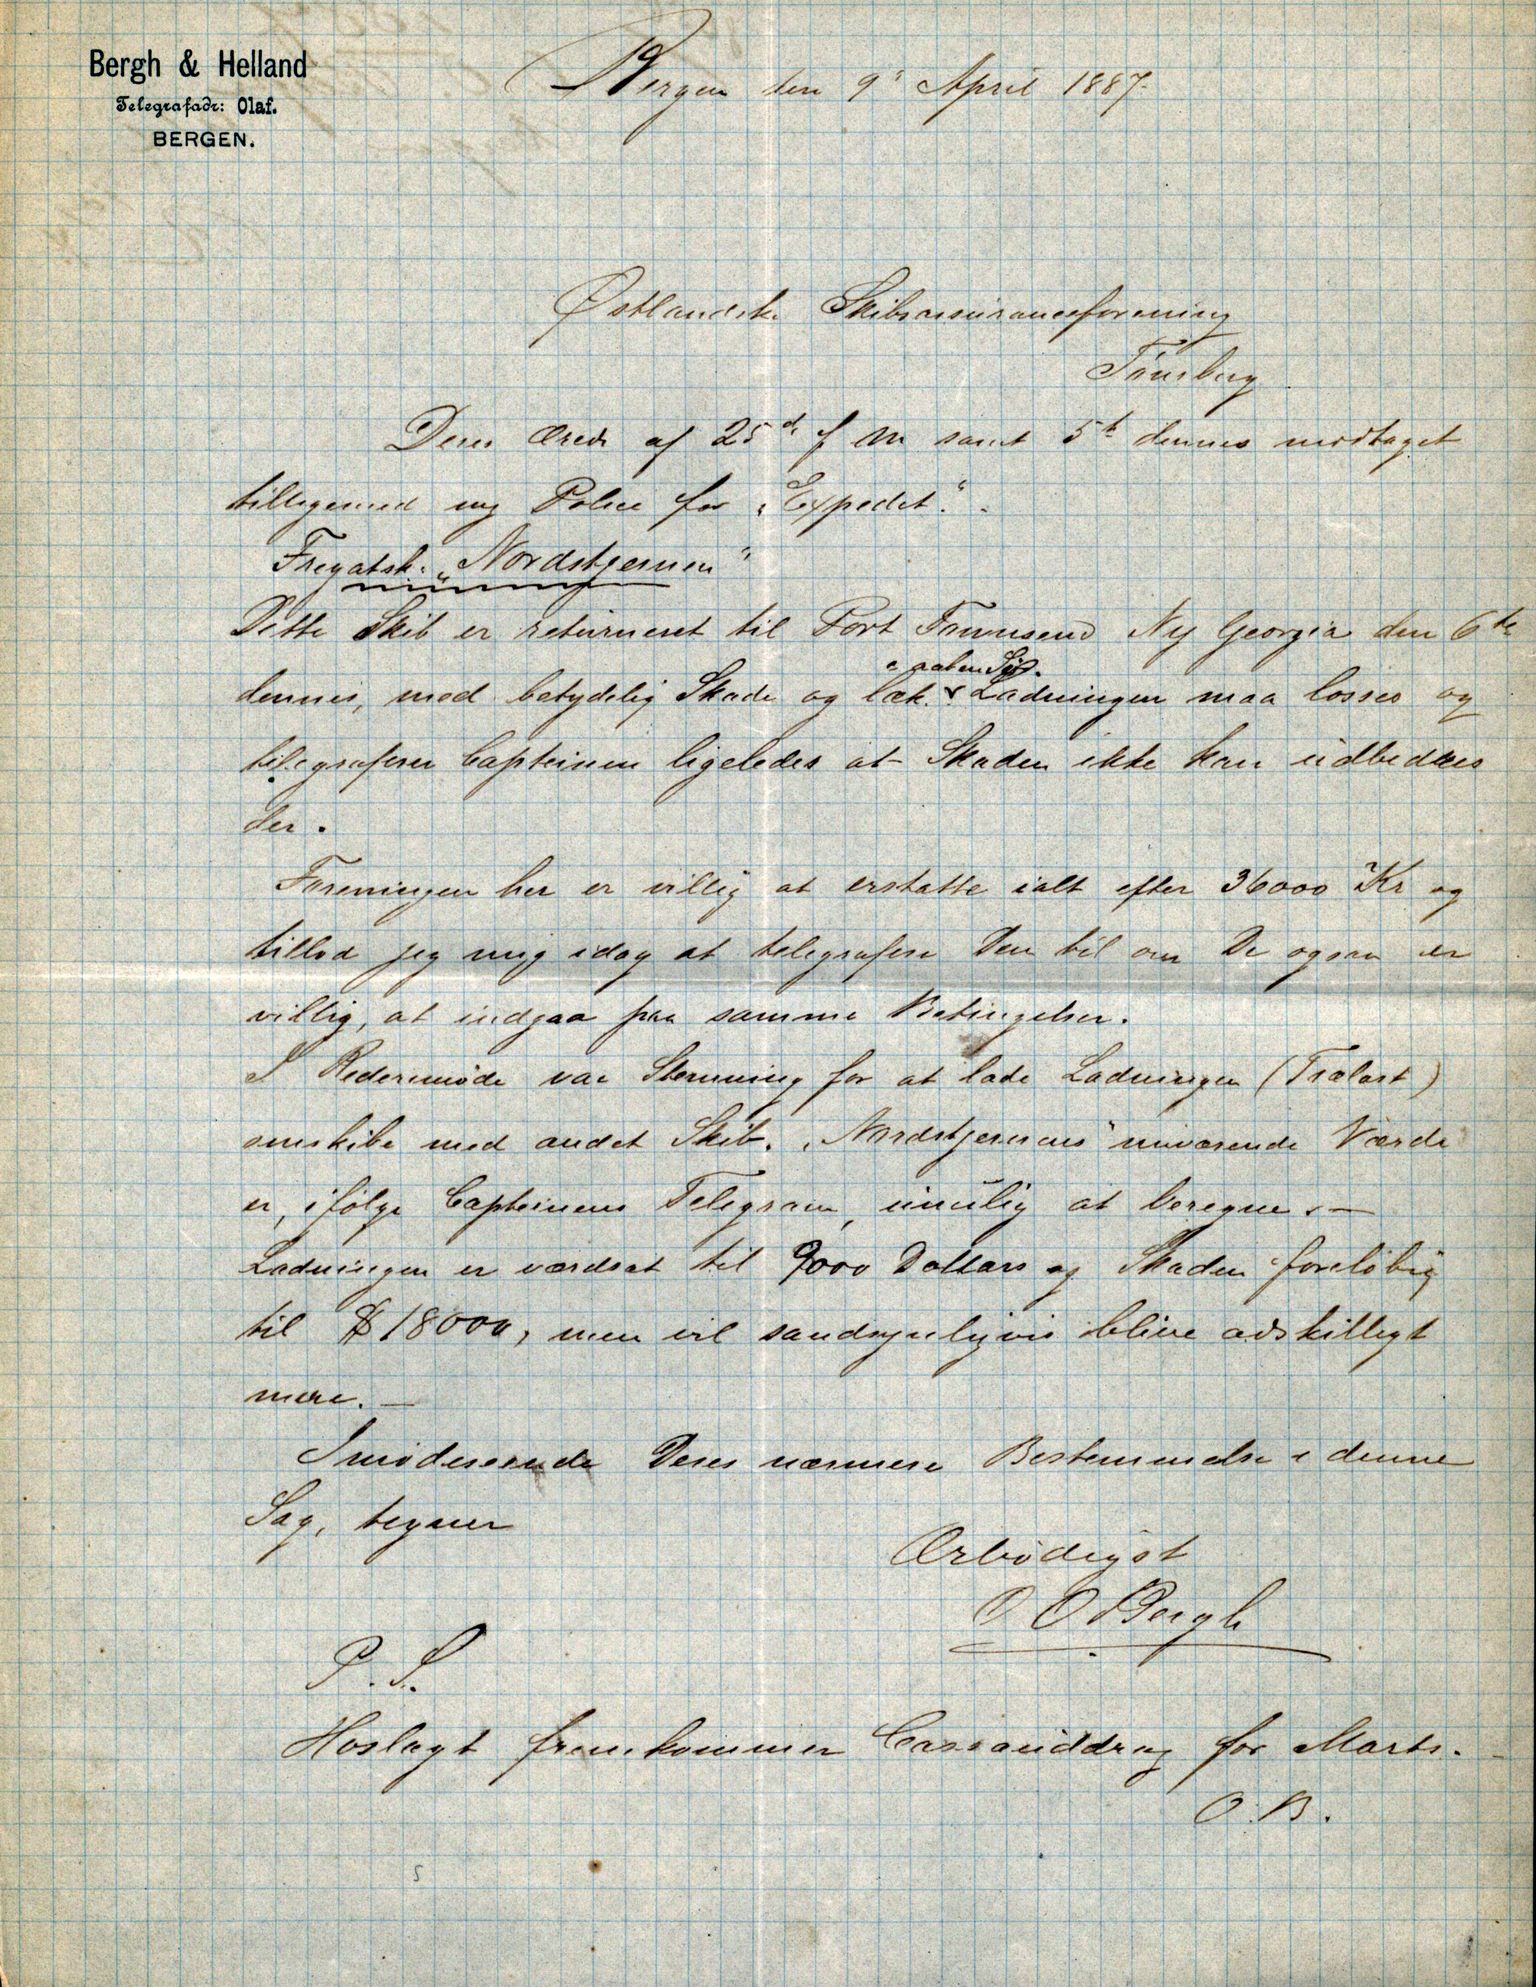 Bergh & Helland
Telegrafadr: Olaf.
BERGEN.
Bergen den 9' April 1887.
Østlandske Skibsassuranceforening
Tønsberg
Deres Ærede af 25de f M samt 5te dennes modtaget
tilligemed ny Police for „Expedit".
Fregatsk. „Nordstjernen"
Dette Skib er returneret til Port Townsend Ny Georgia den 6te
i aaben Sø.
dennes, med betydelig Skade og læk. Ladningen maa losses og
telegraferer Capteinen ligeledes at Skaden ikke kan udbedres
der.
Foreningen her er villig at erstatte ialt efter 36000 Kr og
tillod jeg mig idag at telegrafere Dem til om De ogsaa er
villig, at indgaa paa samme Betingelser.
I Redermøde var Stemning for at lade Ladningen (Trælast)
omskibe med andet Skib. „Nordstjernens" nuværende Værdi
er, ifølge Capteinens Telegram, umulig at beregne. —
Ladningen er værdsat til 9000 Dollars og Skaden foreløbig
til $ 18000, men vil sandsynligvis blive adskilligt
mere. —
Imødeseende Deres nærmere Bestemmelse i denne
Sag, tegner
Ærbødigst
O Bergh
P. S.
Hoslagt fremkommer Cassauddrag for Marts.
O. B.